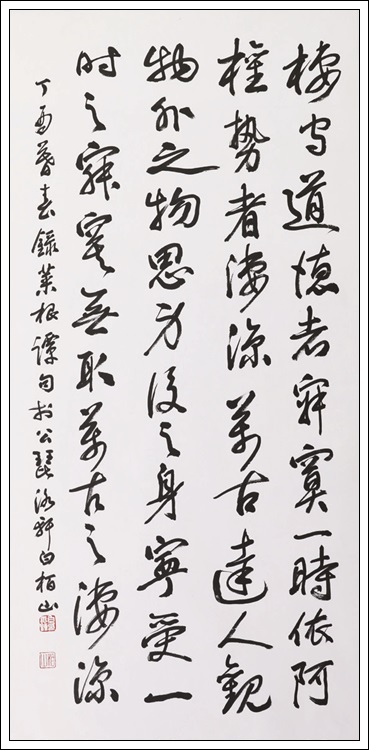 棲守道德者寂寞一時依阿
權勢者淒涼萬古達人觀
物外之物思身後之身寧受一
时之寂寞無取萬古之淒涼
丁酉暮春錄菜根譚句於公琵洛軒白栢山